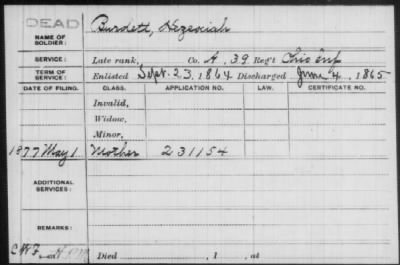 DEAD
NAME OF SOLDIER: Burdett, Hezekiah
SERVICE: Late rank, Co. A, 39 Reg't Ohio Inf
TERM OF SERVICE: Enlisted Sept. 23, 1864 Discharged June 4, 1865
DATE OF FILING. CLASS. APPLICATION NO. LAW. CERTIFICATE NO.
Invalid,
Widow,
Minor,
1877 May 1 Mother 231154
ADDITIONAL SERVICES:
REMARKS:
Died , 1 , at